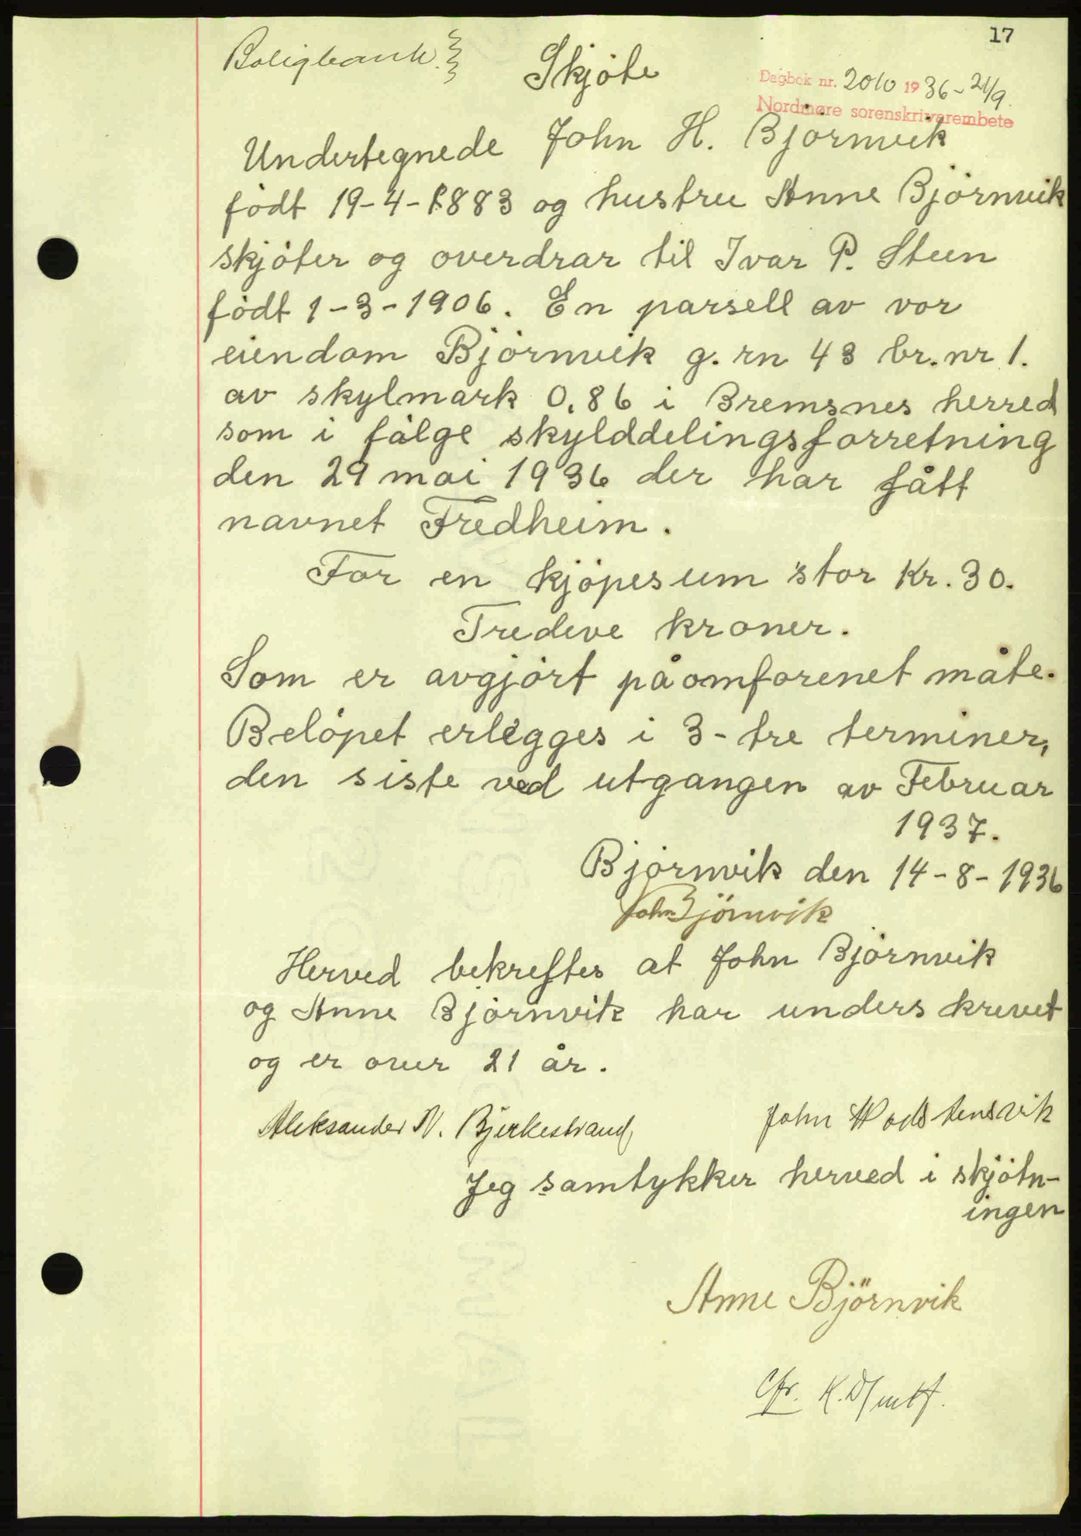 17
Boligbank.
Skjøte
Dagbok nr. 2010 1936 - 21/9.
Nordmøre sorenskriverembete
Undertegnede John H. Bjørnvik
født 19-4-1883 og hustru Anne Bjørnvik
skjøter og overdrar til Ivar P. Steen
født 1-3-1906. En parsell av vor
eiendom Bjørnvik g. rn 43 br. nr 1.
av skylmark 0,86 i Bremsnes herred
som i følge skylddelingsforretning
den 29 mai 1936 der har fått
navnet Fredheim.
For en kjøpesum stor Kr. 30.
Tredeve kroner.
Som er avgjørt på omforenet måte.
Beløpet erlegges i 3- tre terminer,
den siste ved utgangen av Februar
1937.
Bjørnvik den 14-8-1936
John Bjørnvik
Herved bekreftes at John Bjørnvik
og Anne Bjørnvik har underskrevet
og er over 21 år.
Aleksander N. Bjerkestrand John Vadstensvik
Jeg samtykker herved i skjøtn-
ingen
Anne Björnvik
Cfr.